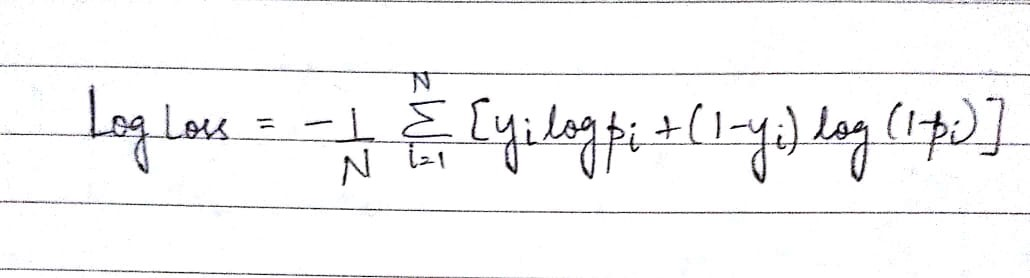 Log Loss = -1/N N∑i=1 [yi log pi + (1-yi) log (1-pi)]